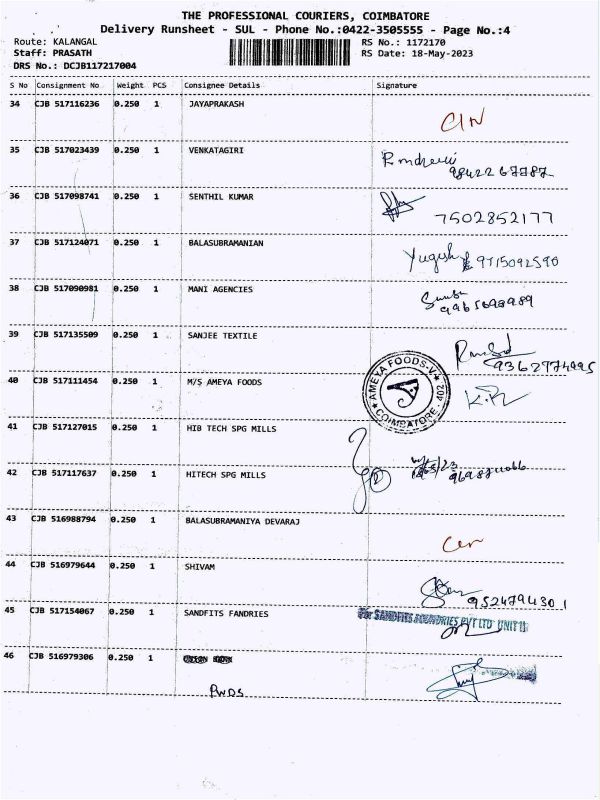 THE PROFESSIONAL COURIERS, COIMBATORE
Delivery Runsheet - SUL - Phone No.:0422-3505555 - Page No.:4
Route: KALANGAL RS No.: 1172170
Staff: PRASATH RS Date: 18-May-2023
DRS No.: DCJB117217004
S No Consignment No Weight PCS Consignee Details Signature
34 CJB 517116236 0.250 1 JAYAPRAKASH
35 CJB 517023439 0.250 1 VENKATAGIRI
36 CJB 517098741 0.250 1 SENTHIL KUMAR
7502852177
37 CJB 517124071 0.250 1 BALASUBRAMANIAN
9715092590
38 CJB 517090981 0.250 1 MANI AGENCIES
39 CJB 517135509 0.250 1 SANJEE TEXTILE
40 CJB 517111454 0.250 1 M/S AMEYA FOODS
AMEYA FOODS COIMBATORE 402
41 CJB 517127015 0.250 1 HIB TECH SPG MILLS
42 CJB 517117637 0.250 1 HITECH SPG MILLS
43 CJB 516988794 0.250 1 BALASUBRAMANIYA DEVARAJ
44 CJB 516979644 0.250 1 SHIVAM
9524794301
45 CJB 517154067 0.250 1 SANDFITS FANDRIES
For SANDFITS FOUNDRIES PVT LTD UNIT II
46 CJB 516979306 0.250 1
PWDS